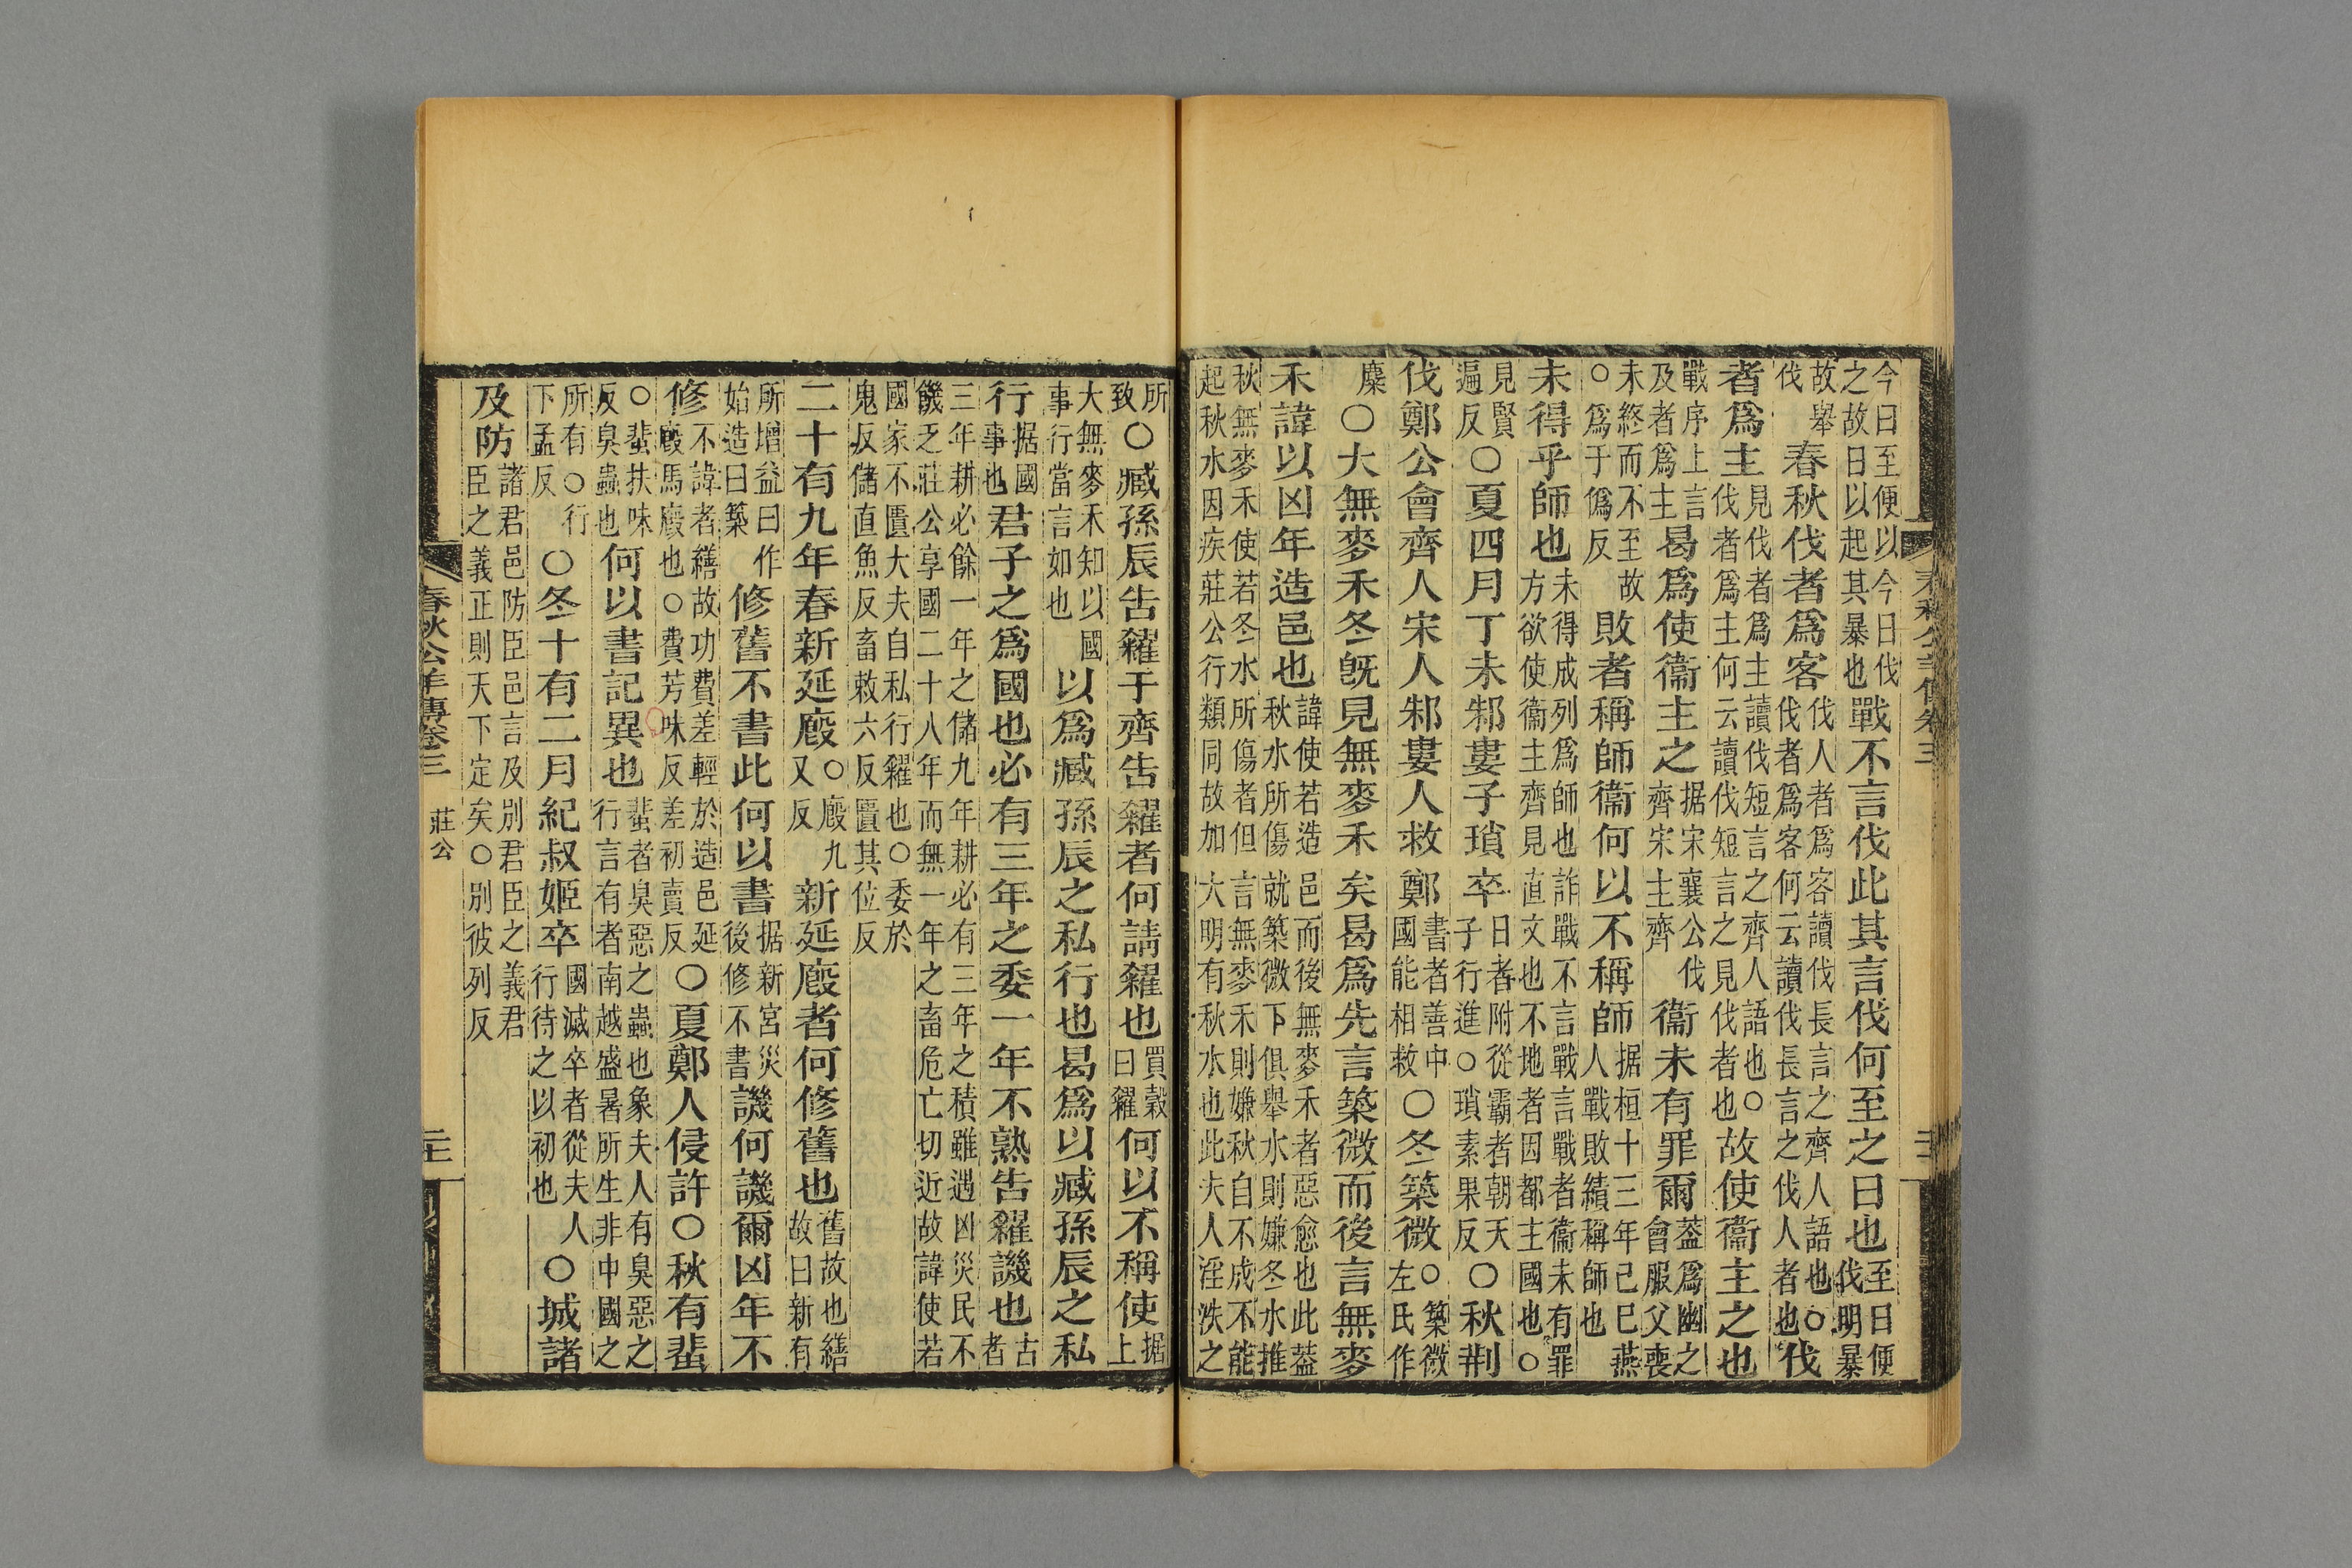 今日至便以今日伐之故曰以起其暴也戰不言伐此其言伐何至之日也至日便伐明暴
故舉伐春秋伐者爲客伐人者爲客讀伐長言之齊人語也○伐者爲客何云讀伐長言之伐人者也伐
者爲主見伐者爲主讀伐短言之齊人語也○伐者爲主何云讀伐短言之見伐者也故使衞主之也
戰序上言及者爲主曷爲使衞主之据宋襄公伐齊宋主齊衞未有罪爾蓋爲幽之會服父喪
未終而不至故○爲于僞反敗者稱師衞何以不稱師据桓十三年己巳燕人戰敗績稱師也
未得乎師也未得成列爲師也詐戰不言戰言戰者衞未有罪方欲使衞主齊見直文也不地者因都主國也○
見賢遍反○夏四月丁未邾婁子瑣卒日者附從霸者朝天子行進○瑣素果反○秋荆
伐鄭公會齊人宋人邾婁人救鄭書者善中國能相救○冬築微○築微左氏作
麋○大無麥禾冬旣見無麥禾矣曷爲先言築微而後言無麥
禾諱以凶年造邑也諱使若造邑而後無麥禾者惡愈也此蓋秋水所傷就築微下俱舉水則嫌冬水推
秋無麥禾使若冬水所傷者但言無麥禾則嫌秋自不成不能起秋水因疾莊公行類同故加大明有秋水也此夫人淫泆之
所致○臧孫辰告糴于齊告糴者何請糴也買穀曰糴何以不稱使据上
大無麥禾知以國事行當言如也以爲臧孫辰之私行也曷爲以臧孫辰之私
行据國事也君子之爲國也必有三年之委一年不熟告糴譏也古者
三年耕必餘一年之儲九年耕必有三年之積雖遇凶災民不饑乏莊公享國二十八年而無一年之畜危亡切近故諱使若
國家不匱大夫自私行糴也○委於鬼反儲直魚反畜敕六反匱其位反
二十有九年春新延廄○廄九又反新延廄者何修舊也舊故也繕故曰新有
所增益曰作始造曰築修舊不書此何以書据新宮災後修不書譏何譏爾凶年不
修不諱者繕故功費差輕於造邑延廄馬廄也○費芳味反差初賣反○夏鄭人侵許○秋有蜚
○蜚扶味反臭蟲也何以書記異也蜚者臭惡之蟲也象夫人有臭惡之行言有者南越盛暑所生非中國之
所有○行下孟反○冬十有二月紀叔姬卒國滅卒者從夫人行待之以初也○城諸
及防諸君邑防臣邑言及別君臣之義君臣之義正則天下定矣○別彼列反
春秋公羊傳卷三 莊公